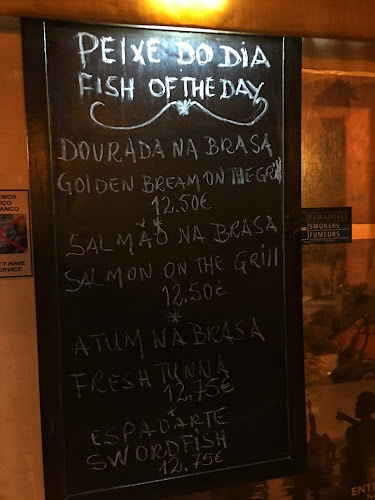 PEIXE DO DIA
FISH OF THE DAY
DOURADA NA BRASA
GOLDEN BREAM ON THE GRILL
12.50€
*
SALMÃO NA BRASA
SALMON ON THE GRill
12.50€
*
ATUM NA BRASA
FRESH TUNNA
12,75€
*
ESPADARTE
SWORDFISH
12.75€
FUMADORES
SMOKERS
FUMEURS